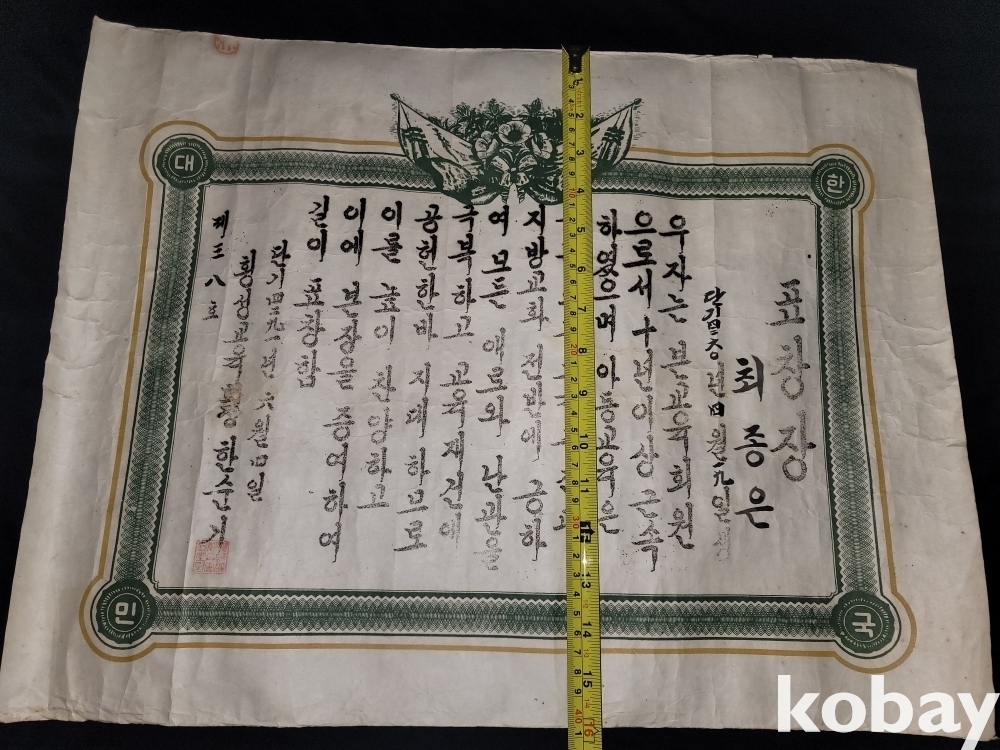 대
한
민
국
표창장
년四월九일
최종은
우자는 본교육회원
으로서 十년이상 근속
하였으며 아동교육은
지방교화 전반에 긍하
여 모든 애로와 난관을
극복하고 교육재건에
공헌한바 지대 하므로
이를 높이 찬양하고
이에 본장을 증여하여
길이 표창함
단기四二九一년 월 일
횡성교육 한순기
제三八호
kobay